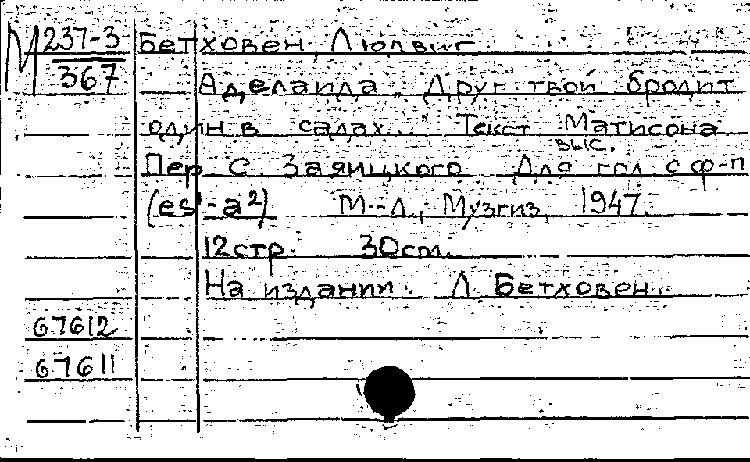 М 237-3
367
Бетховен, Людвиг
Аделаида. Друг твой бродит
один в садах... Текст Матисона
Пер С. Заяицкого Для выс. гол с ф-п
(es¹-a²) М.-Л., Музгиз, 1947.
12стр. 30см.
На издании: Л. Бетховен.
67612
67611